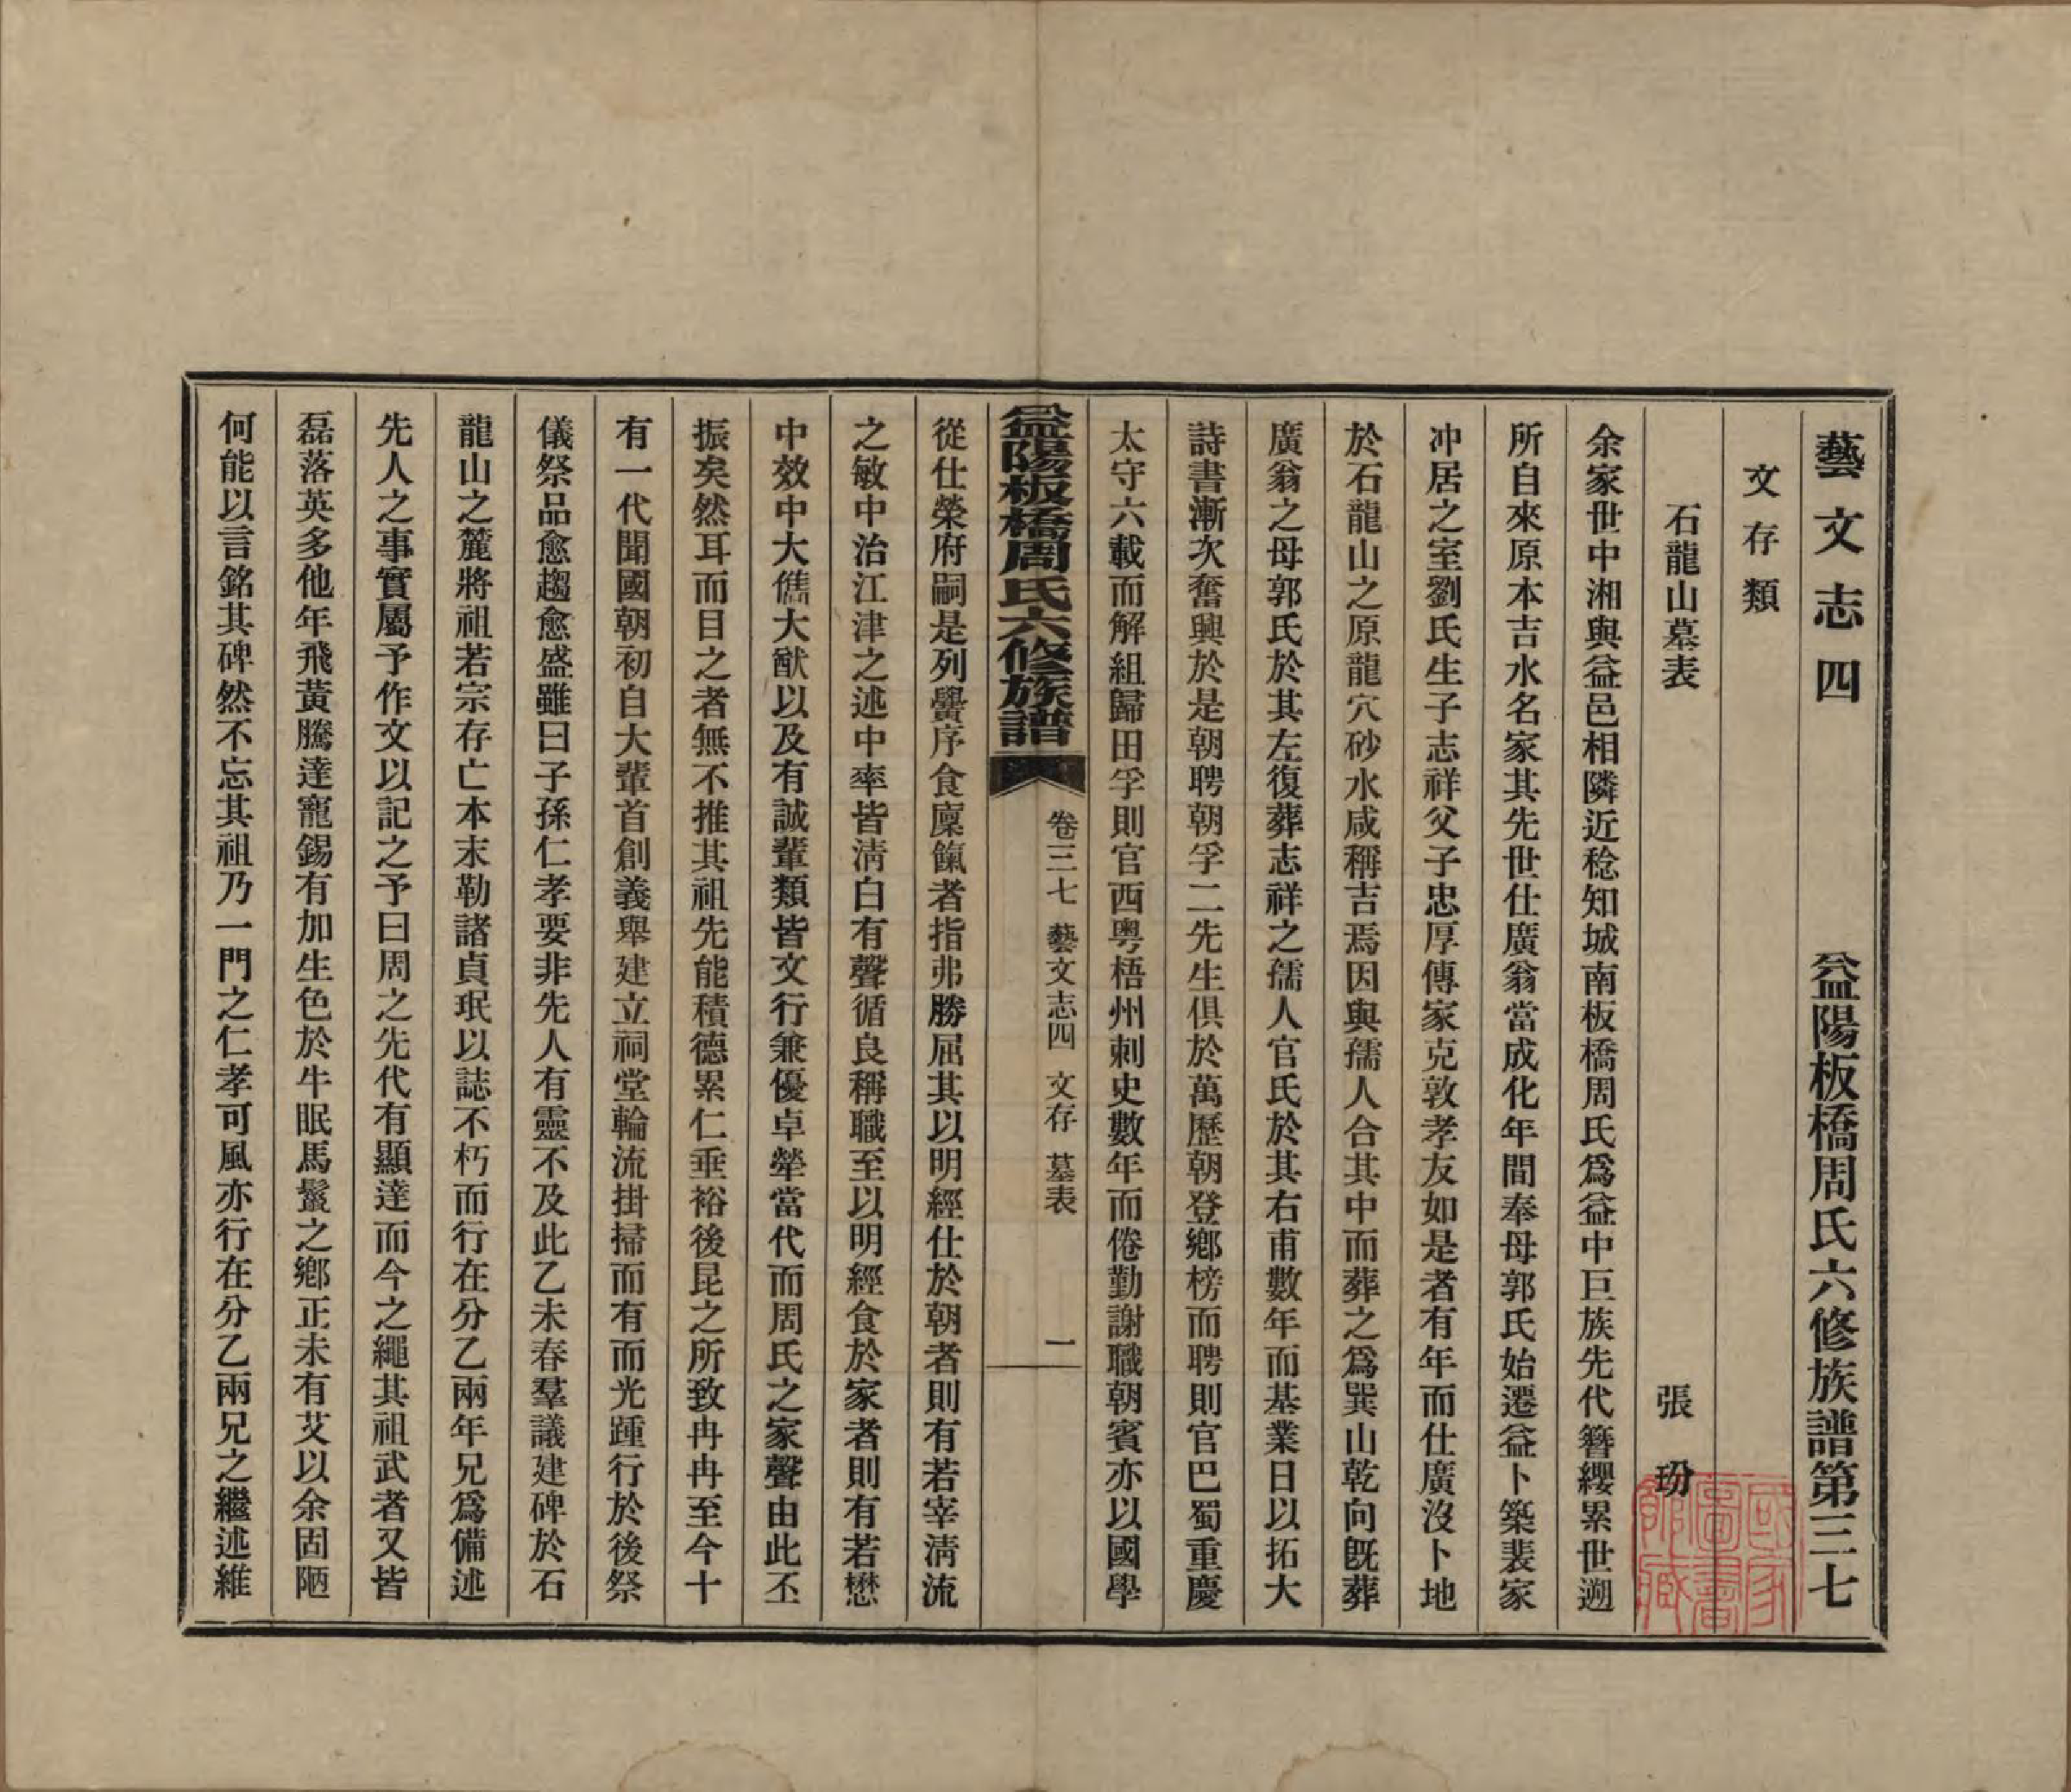 藝文志四　　益陽板橋周氏六修族譜第三七
文存類
石龍山墓表　　張玢
余家世中湘與益邑相隣近稔知城南板橋周氏爲益中巨族先代簪纓累世遡
所自來原本吉水名家其先世仕廣翁當成化年間奉母郭氏始遷益卜築裴家
冲居之室劉氏生子志祥父子忠厚傳家克敦孝友如是者有年而仕廣沒卜地
於石龍山之原龍穴砂水咸稱吉焉因與孺人合其中而葬之爲巽山乾向旣葬
廣翁之母郭氏於其左復葬志祥之孺人官氏於其右甫數年而基業日以拓大
詩書漸次奮興於是朝聘朝孚二先生俱於萬歷朝登鄉榜而聘則官巴蜀重慶
太守六載而解組歸田孚則官西粵梧州刺史數年而倦勤謝職朝賓亦以國學
益陽板橋周氏六修族譜　卷三七　藝文志四　文存　墓表　一
從仕榮府嗣是列黌序食廩餼者指弗勝屈其以明經仕於朝者則有若宰淸流
之敏中治江津之述中率皆淸白有聲循良稱職至以明經食於家者則有若懋
中效中大儁大猷以及有誠輩類皆文行兼優卓犖當代而周氏之家聲由此丕
振矣然耳而目之者無不推其祖先能積德累仁垂裕後昆之所致冉冉至今十
有一代聞國朝初自大輩首創義舉建立祠堂輪流掛掃而有而光踵行於後祭
儀祭品愈趨愈盛雖曰子孫仁孝要非先人有靈不及此乙未春羣議建碑於石
龍山之麓將祖若宗存亡本末勒諸貞珉以誌不朽而行在分乙兩年兄爲備述
先人之事實屬予作文以記之予曰周之先代有顯達而今之繩其祖武者又皆
磊落英多他年飛黃騰達寵錫有加生色於牛眠馬鬣之鄉正未有艾以余固陋
何能以言銘其碑然不忘其祖乃一門之仁孝可風亦行在分乙兩兄之繼述維
國家圖書館藏